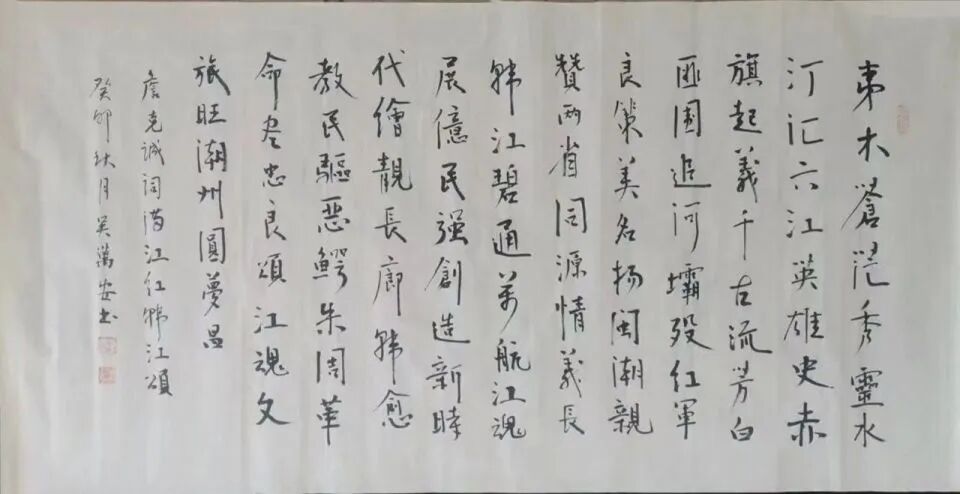 木蒼茫秀靈水
汀汇六江英雄史赤
旗起義千古流芳白
匪围追河壩殁红軍
良策美名扬閩潮親
贊两省同源情義長
韩江碧通萬航江魂
展億民强創造新時
代繪靚長廊韩愈
教民驅惡鳄朱周革
命尽忠良頌江魂文
旅旺潮州圓夢昌
詹克诚词满江红韩江頌
癸卯秋月吴萬安书